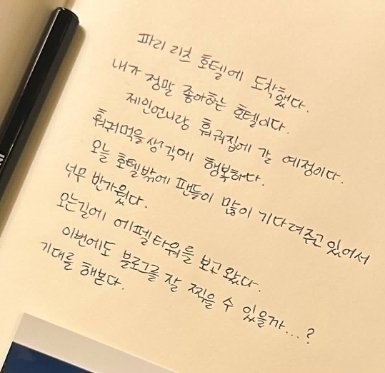 파리 리츠 호텔에 도착했다.
내가 정말 좋아하는 호텔이다.
제인언니랑 훠궈집에 갈 예정이다.
훠궈먹을생각에 행복하다.
오늘 호텔밖에 팬들이 많이 기다려주고있어서
너무 반가웠다.
오는길에 에펠타워를 보고왔다.
이번에도 블로그를 잘 찍을 수 있을까...?
기대를 해본다.